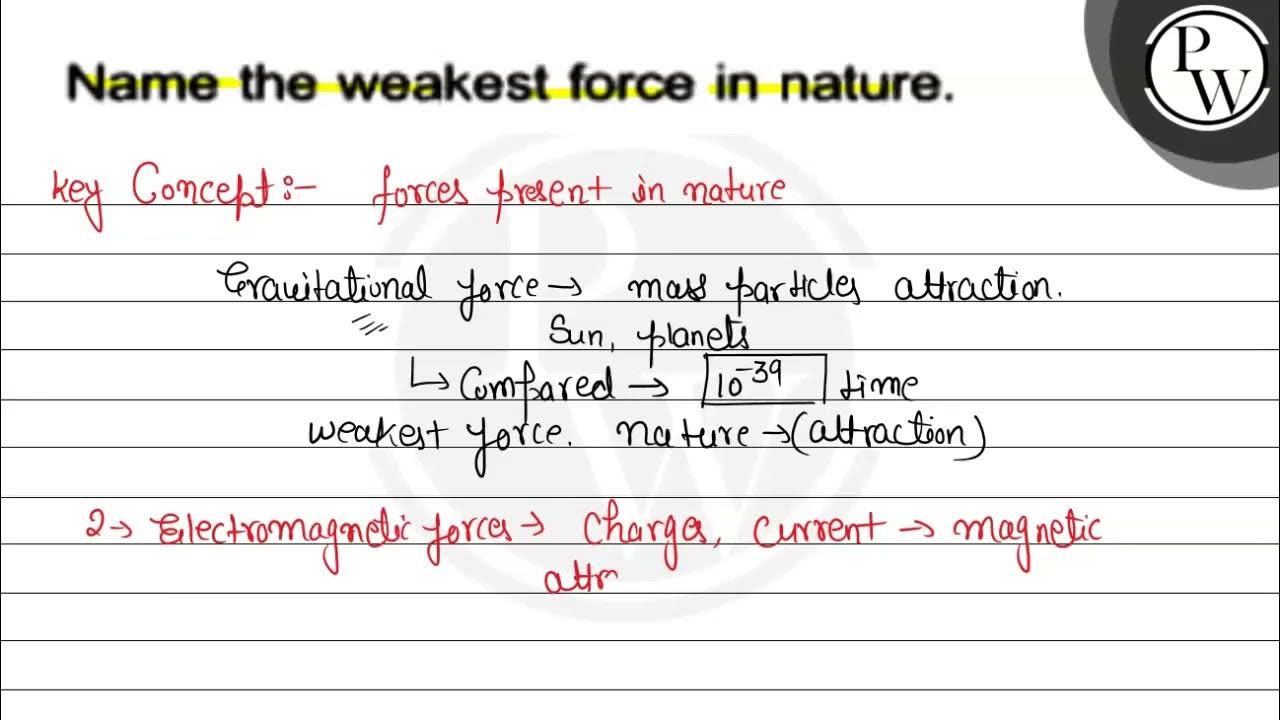 Name the weakest force in nature.
P
W
Key Concept:- forces present in nature
Gravitational force → mass particles attraction.
Sun, planets
↳ Compared → 10⁻³⁹ time
weakest force. nature → (attraction)
2 → Electromagnetic forces → Charges, Current → magnetic
attr